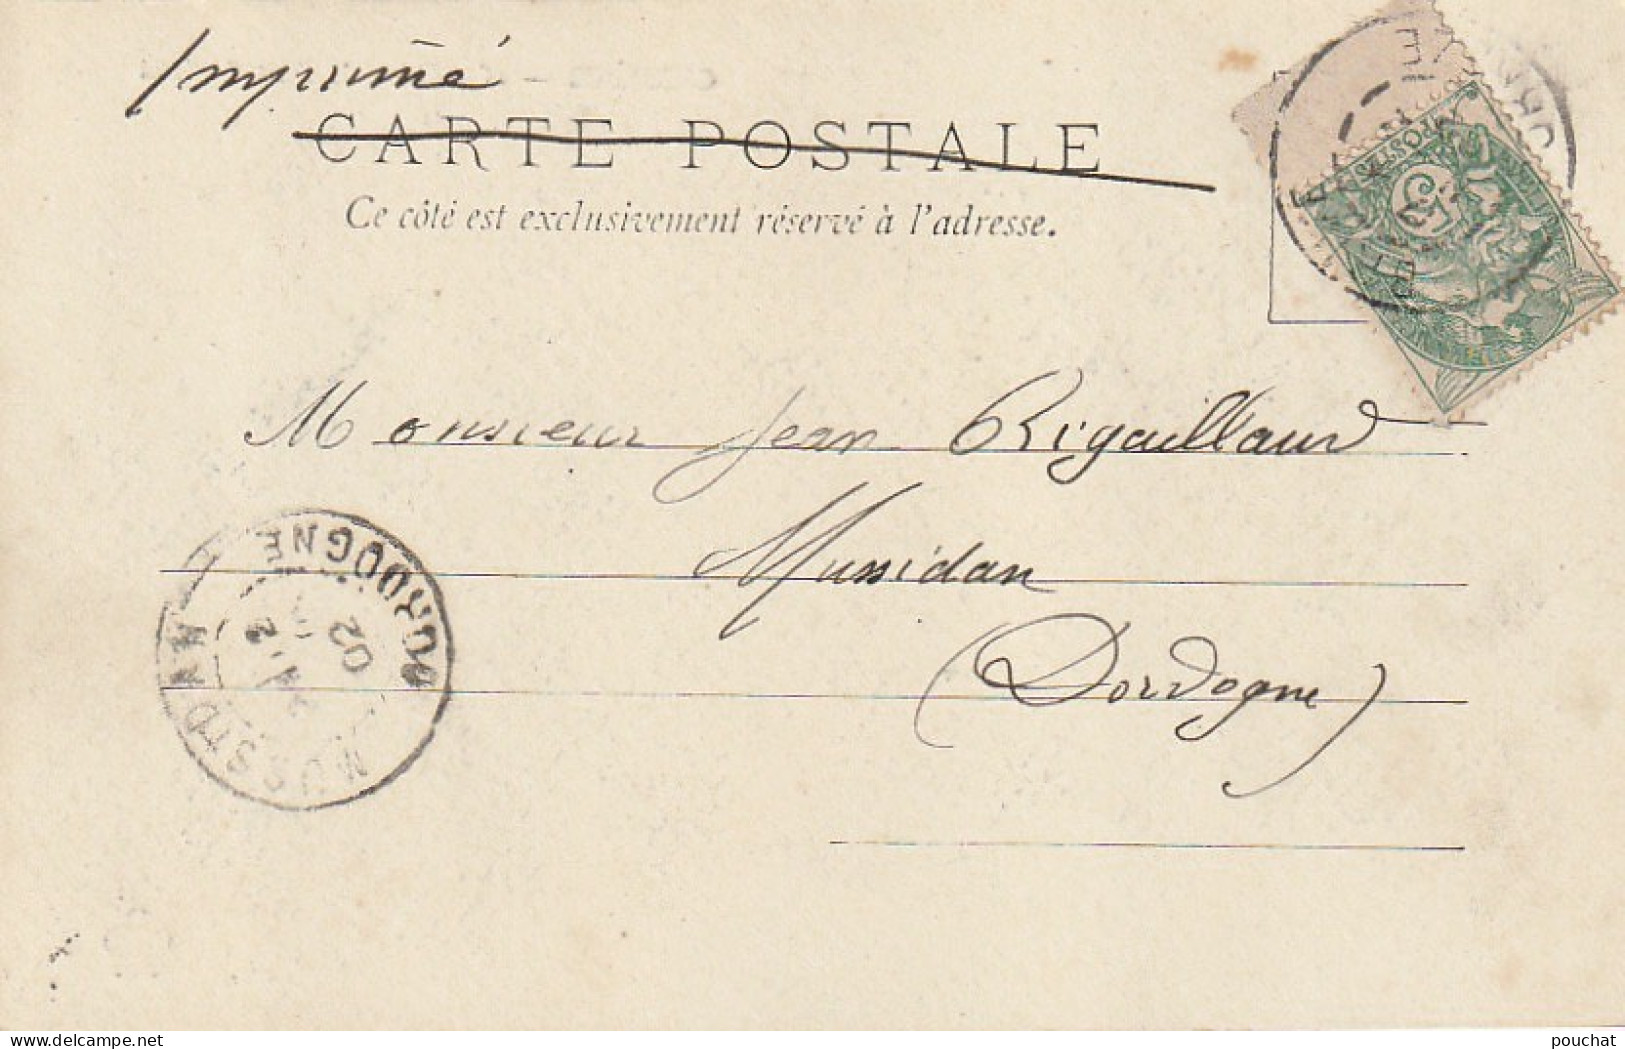 Imprimé
CARTE POSTALE
Ce côté est exclusivement réservé à l'adresse.
POSTES
5
Monsieur Jean Rigaillaud
Mussidan
(Dordogne)
MUSSIDAN
DORDOGNE
02
pouchat